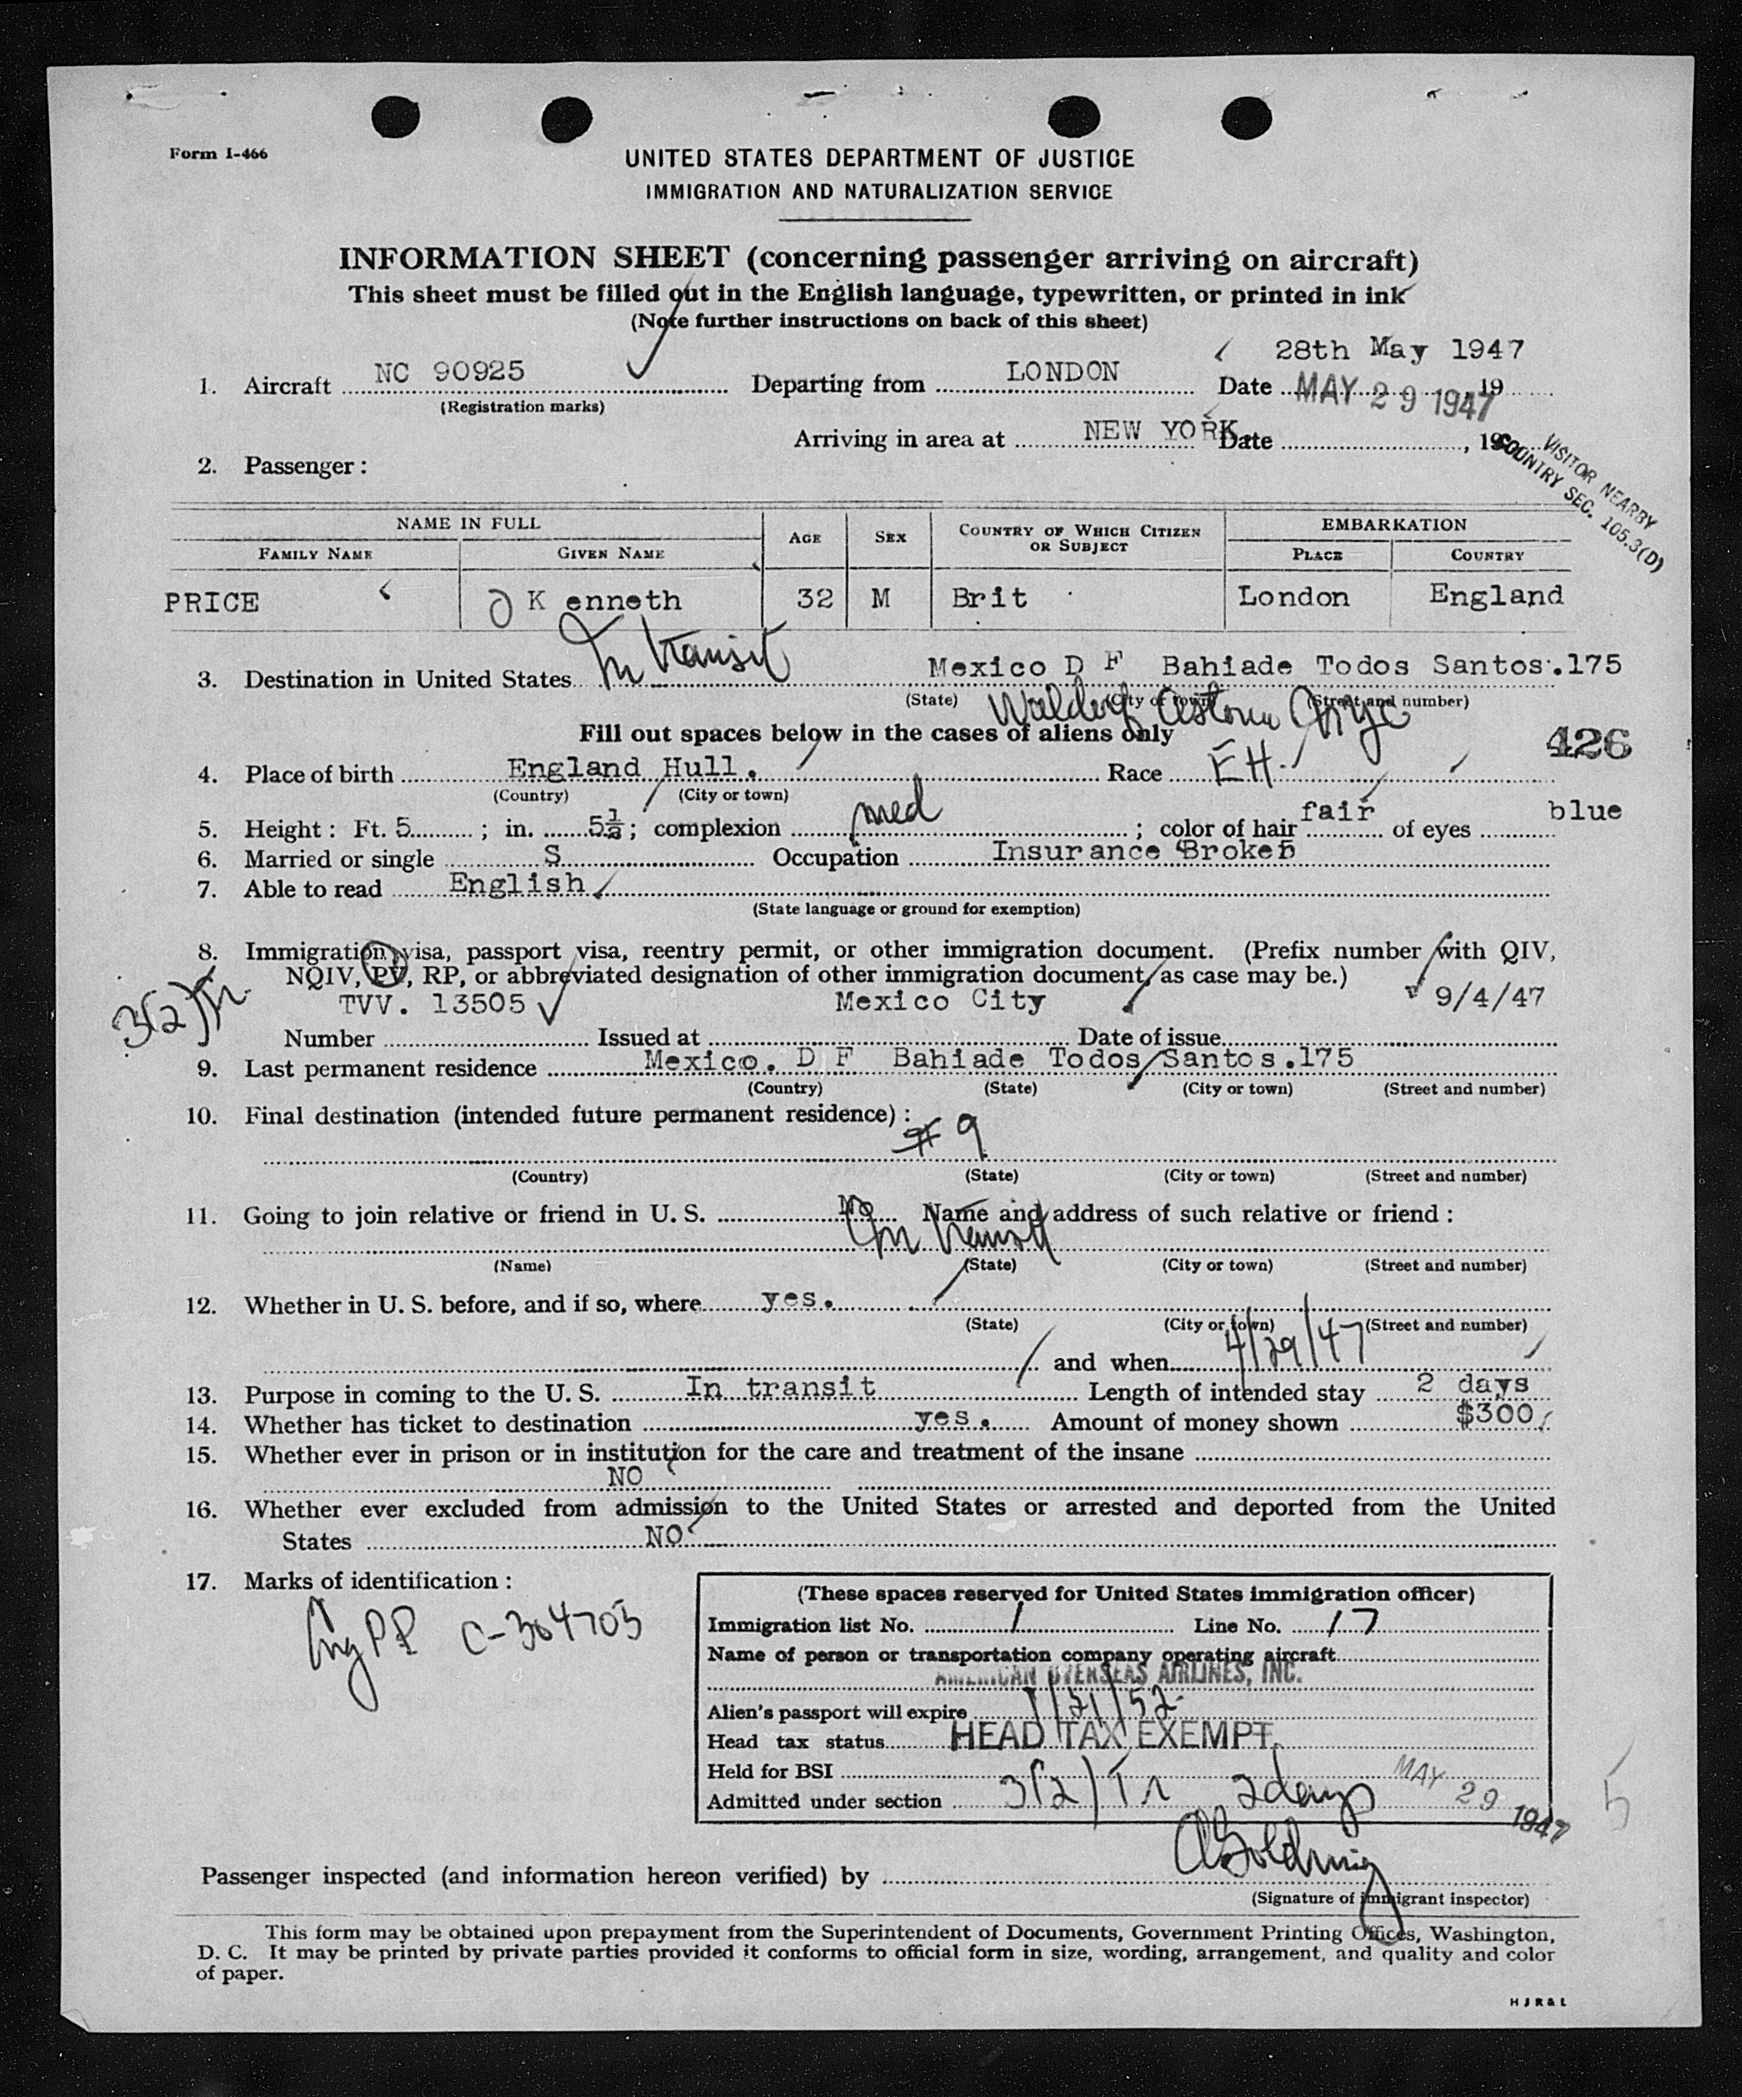 Form I-466
UNITED STATES DEPARTMENT OF JUSTICE
IMMIGRATION AND NATURALIZATION SERVICE
INFORMATION SHEET (concerning passenger arriving on aircraft)
This sheet must be filled out in the English language, typewritten, or printed in ink
(Note further instructions on back of this sheet)
28th May 1947
1. Aircraft NC 90925 Departing from LONDON Date MAY 29 1947 19
(Registration marks)
Arriving in area at NEW YORK Date , 19
VISITOR NEARBY
COUNTRY SEC. 105.3(D)
2. Passenger:
NAME IN FULL AGE SEX COUNTRY OF WHICH CITIZEN OR SUBJECT EMBARKATION
FAMILY NAME GIVEN NAME PLACE COUNTRY
PRICE K enneth 32 M Brit London England
3. Destination in United States In transit Mexico D F Bahiade Todos Santos.175
(State) (City or town) (Street and number)
Waldorf Astoria
Fill out spaces below in the cases of aliens only
426
4. Place of birth England Hull. Race EH
(Country) (City or town)
5. Height: Ft. 5 ; in. 5½; complexion med ; color of hair fair of eyes blue
6. Married or single S Occupation Insurance Broker
7. Able to read English
(State language or ground for exemption)
8. Immigration visa, passport visa, reentry permit, or other immigration document. (Prefix number with QIV,
NQIV, PV, RP, or abbreviated designation of other immigration document, as case may be.)
3(2)Tr
TVV. 13505 Mexico City 9/4/47
Number Issued at Date of issue
9. Last permanent residence Mexico. D F Bahiade Todos Santos.175
(Country) (State) (City or town) (Street and number)
10. Final destination (intended future permanent residence):
# 9
(Country) (State) (City or town) (Street and number)
11. Going to join relative or friend in U. S. No Name and address of such relative or friend:
In transit
(Name) (State) (City or town) (Street and number)
12. Whether in U. S. before, and if so, where yes.
(State) (City or town) (Street and number)
and when 4/29/47
13. Purpose in coming to the U. S. In transit Length of intended stay 2 days
14. Whether has ticket to destination yes. Amount of money shown $300
15. Whether ever in prison or in institution for the care and treatment of the insane
NO
16. Whether ever excluded from admission to the United States or arrested and deported from the United
States NO
17. Marks of identification:
PP C-364703
(These spaces reserved for United States immigration officer)
Immigration list No. 1 Line No. 17
Name of person or transportation company operating aircraft
AMERICAN OVERSEAS AIRLINES, INC.
Alien's passport will expire 1/21/52
Head tax status HEAD TAX EXEMPT
Held for BSI
MAY 29 1947
Admitted under section 3(2)Tr 2 days
5
Passenger inspected (and information hereon verified) by
(Signature of immigrant inspector)
This form may be obtained upon prepayment from the Superintendent of Documents, Government Printing Offices, Washington,
D. C. It may be printed by private parties provided it conforms to official form in size, wording, arrangement, and quality and color
of paper.
H J R & L